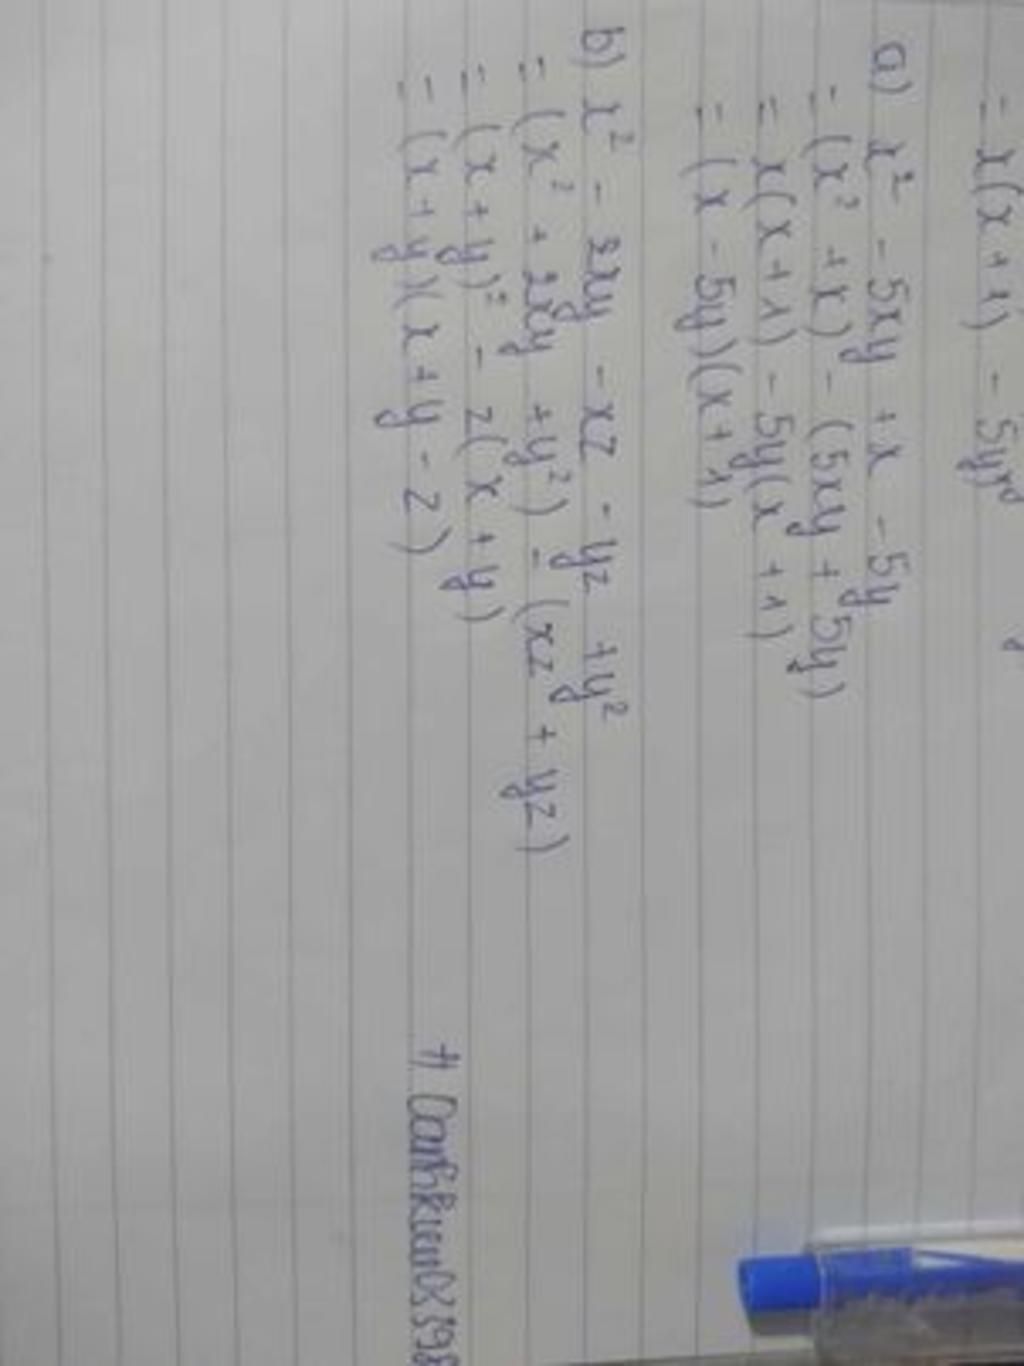 = x(x+1) - 5y
a) x² - 5xy + x - 5y
= (x² + x) - (5xy + 5y)
= x(x+1) - 5y(x+1)
= (x - 5y)(x+1)
b) x² - 2xy - xz - yz + y²
= (x² + 2xy + y²) - (xz + yz)
= (x+y)² - z(x+y)
= (x+y)(x+y-z)